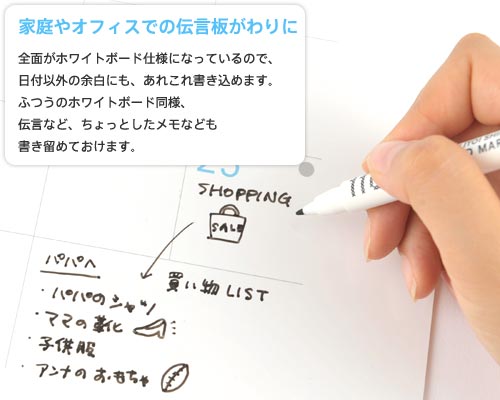 家庭やオフィスでの伝言板がわりに
全面がホワイトボード仕様になっているので、
日付以外の余白にも、あれこれ書き込めます。
ふつうのホワイトボード同様、
伝言など、ちょっとしたメモなども
書き留めておけます。
25
SHOPPING
SALE
買い物 LIST
パパへ
・パパのシャツ
・ママの靴
・子供服
・アンナのおもちゃ